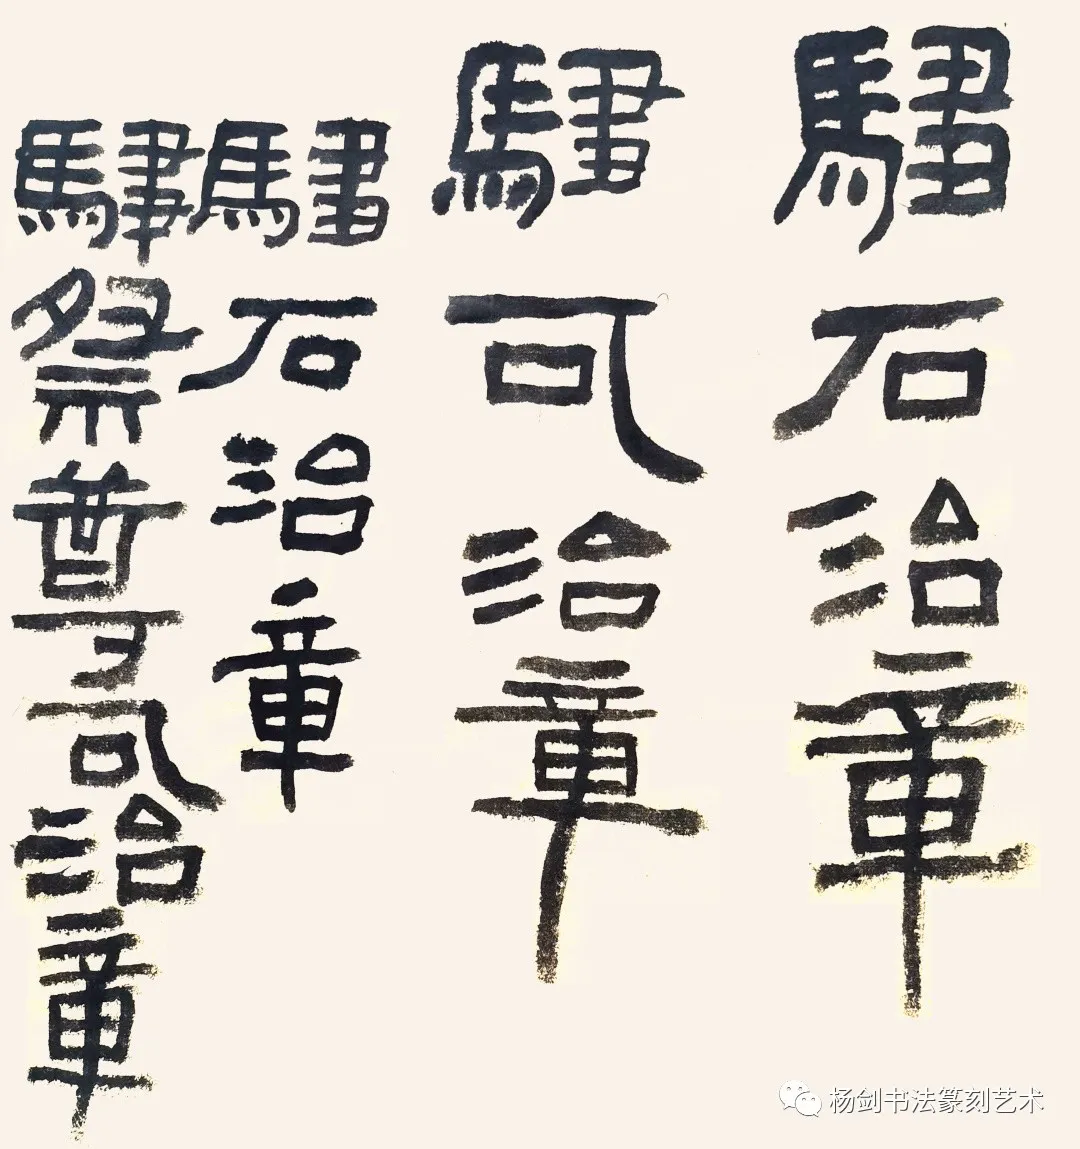 石治章
司治章
石治章
祭尊司治章
杨剑书法篆刻艺术